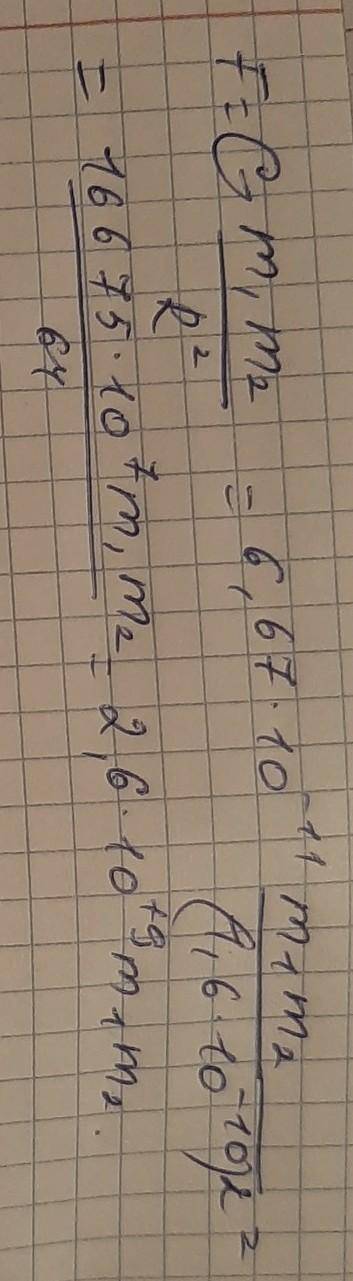 F = G m₁ m₂ / R² = 6,67 · 10⁻¹¹ m₁ m₂ / (1,6 · 10⁻¹⁰)² =
= 16675 · 10⁷ m₁ m₂ / 64 = 2,6 · 10⁺⁹ m₁ m₂.